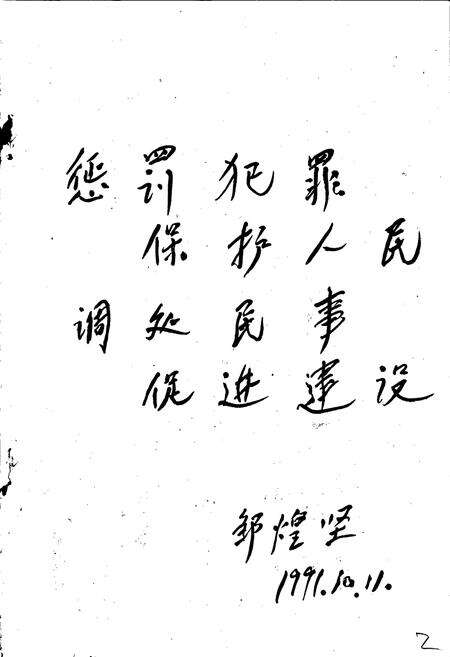 惩罚犯罪
保护人民
调处民事
促进建设
邹煌坚
1991.10.11.
2